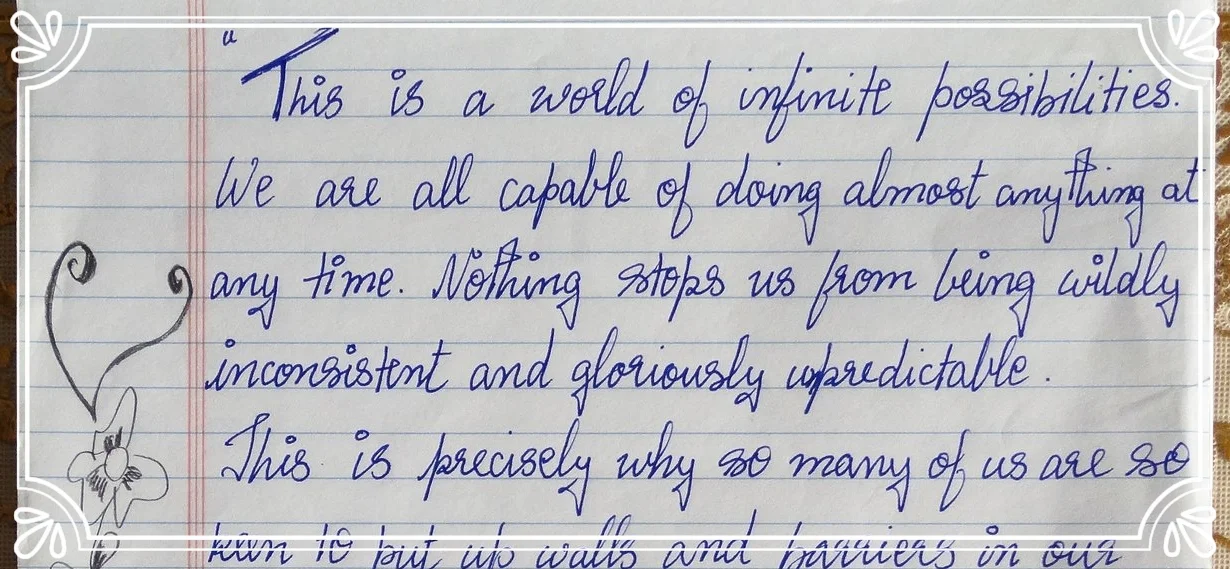 "This is a world of infinite possibilities.
We are all capable of doing almost anything at
any time. Nothing stops us from being wildly
inconsistent and gloriously upredictable.
This is precisely why so many of us are so
keen to put up walls and barriers in our